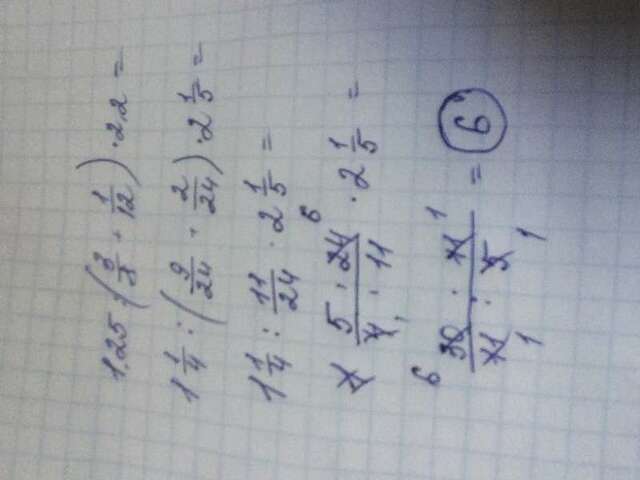 1,25 : (3/8 + 1/12) · 2,2 =
1 1/4 : (9/24 + 2/24) · 2 1/5 =
1 1/4 : 11/24 · 2 1/5 =
5 · 24 6 / 4 1 · 11 · 2 1/5 =
6 30 · 11 1 / 11 1 · 5 1 = 6